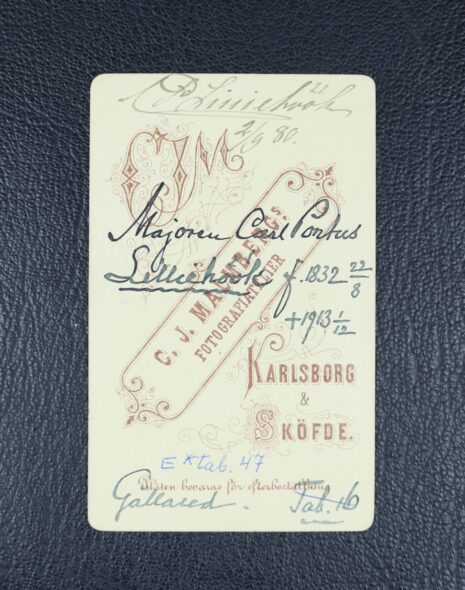 CP Lilliehöök
2/9 80.
CJM
Majoren Carl Pontus
Lilliehöök f. 1832 22/8
+1913 1/12
C. J. MALMBERGS
FOTOGRAFIATELIER
KARLSBORG
&
SKÖFDE.
E * tab. 47
Plåten bevaras för efterbeställning
Gällared. Tab. 16